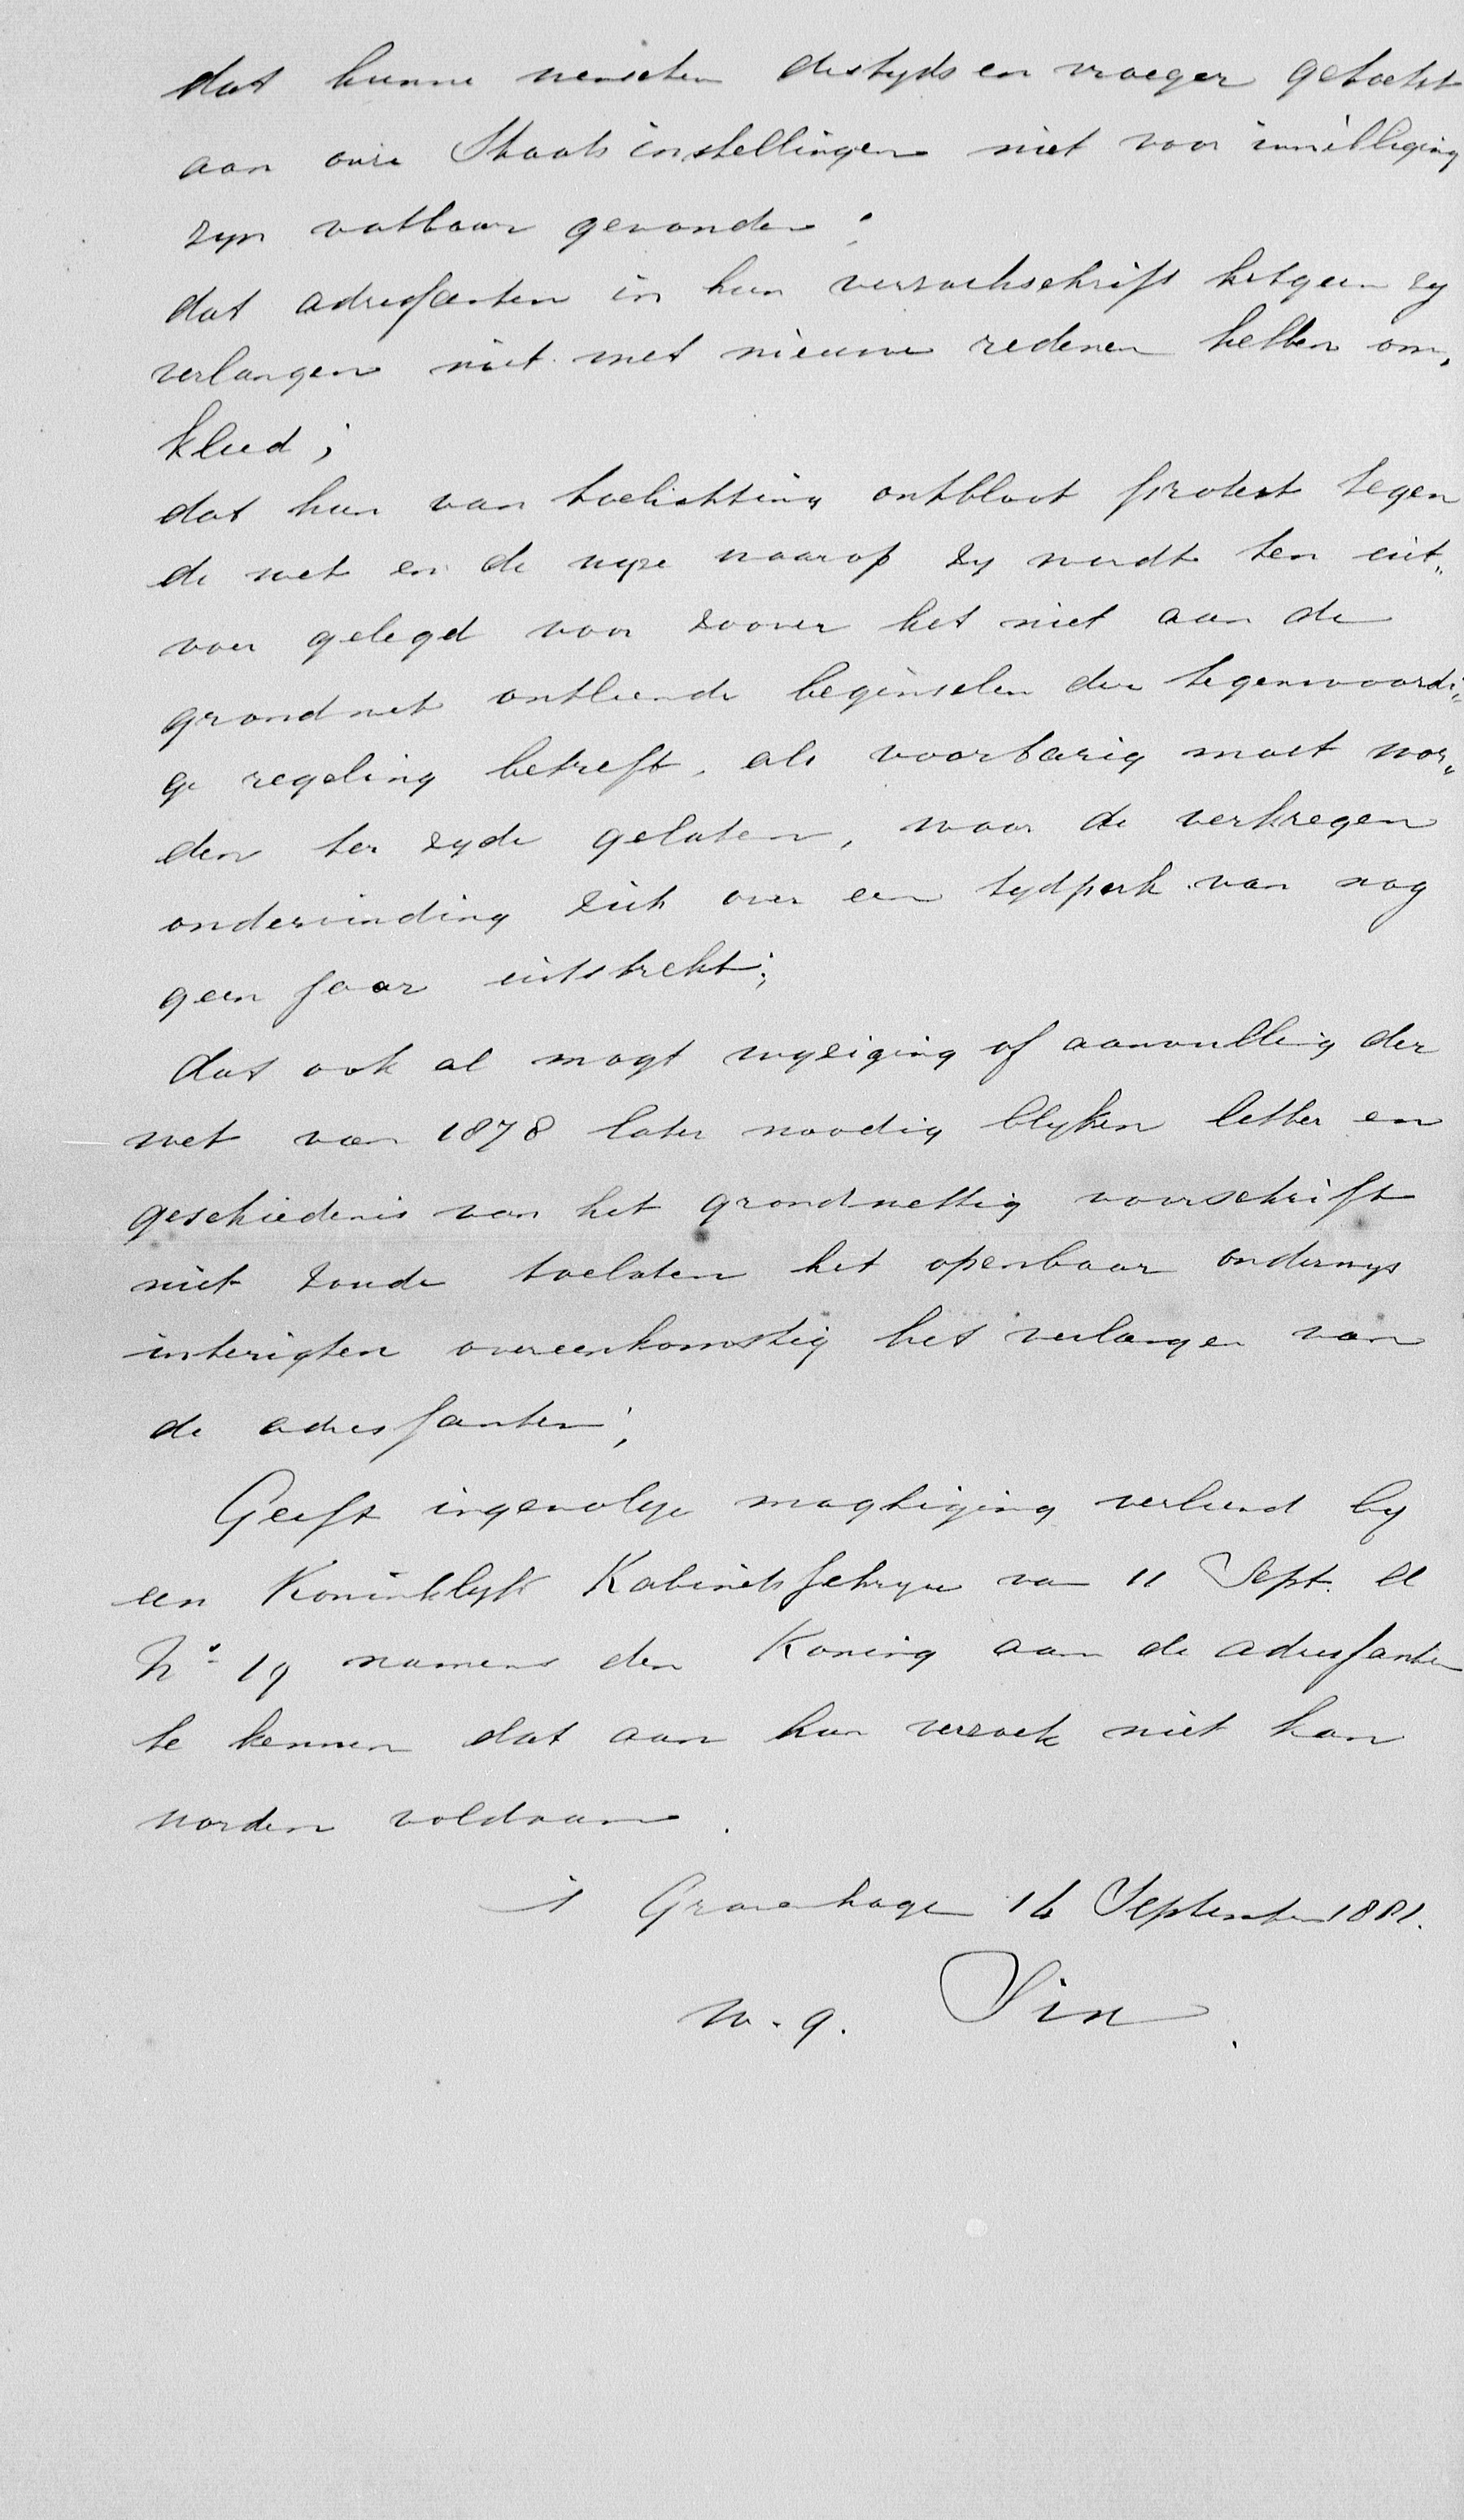 dat hunne wenschen destyds en vroeger getoetst
aan onze Staats instellingen niet voor inwilliging
zyn vatbaar gevonden;
dat adressanten in hun verzoekschrift hetgeen zy
verlangen niet met nieuwe redenen hebben om„
kleed;
dat hun van toelichting ontbloot protest tegen
de wet en de wyze waarop zy wordt ten uit„
voer gelegd voor zoover het niet aan de
grondwet ontleende beginselen der tegenwoordi„
ge regeling betreft, als voorbarig moet wor„
den ter zyde gelaten, waar de verkregen
ondervinding zich over een tydperk van nog
geen jaar uitstrekt;
dat ook al mogt wyziging of aanvulling der
wet van 1878 later noodig blyken letter en
geschiedenis van het grondwettig voorschrift
niet zoude toelaten het openbaar onderwys
interigten overeenkomstig het verlangen van
de adressanten;
Geeft ingevolge magtiging verleend by
een Koninklyk Kabinetsschryven van 11 Sept. ll
No 19 namens den Koning aan de adressanten
te kennen dat aan hun verzoek niet kan
worden voldaan.
's Gravenhage 16 September 1881.
w. g. Six.